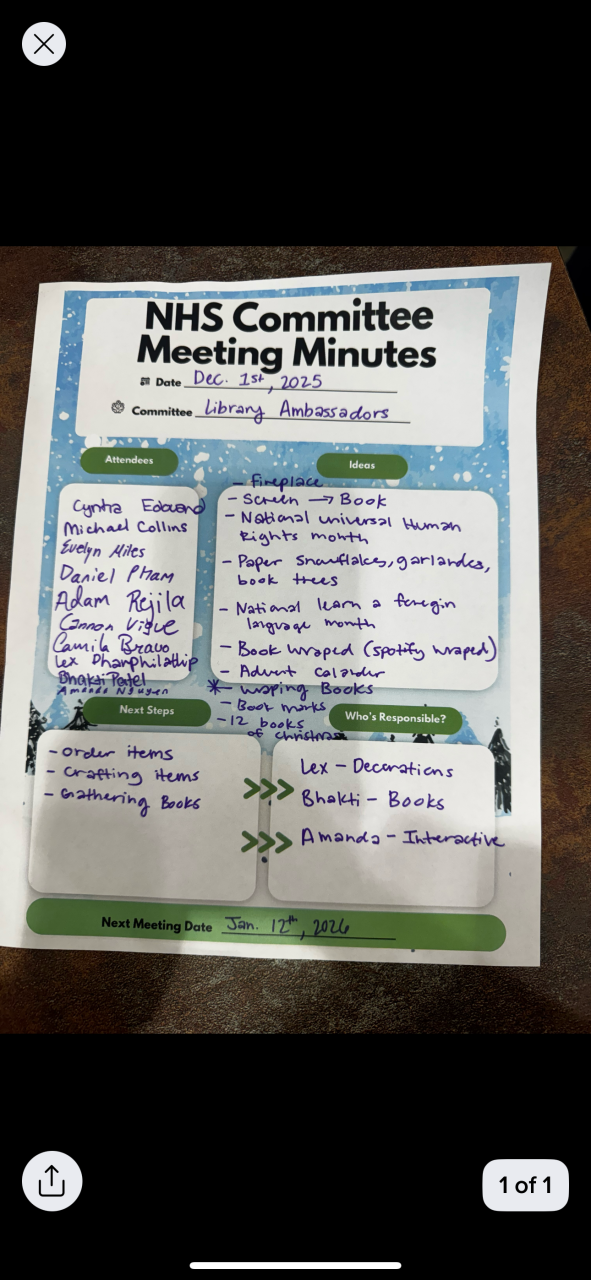 NHS Committee
Meeting Minutes
Date Dec. 1st, 2025
Committee Library Ambassadors
Attendees
Michael Collins
Evelyn Hiles
Daniel Pham
Adam Rejila
Cannon Vigue
Camila Bravo
Lex Phanphilathip
Bhakti Patel
Amanda Nguyen
Ideas
- fireplace
- Screen → Book
- National universal Human
Rights month
- Paper snowflakes, garlandes,
book trees
- National learn a foregin
language month
- Book wraped (spotify wraped)
- Advent calander
*- wraping Books
- Book marks
- 12 books
of christmas
Next Steps
- order items
- crafting items
- Gathering Books
Who's Responsible?
Lex - Decorations
Bhakti - Books
Amanda - Interactive
Next Meeting Date Jan. 12th, 2026
1 of 1